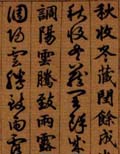 秋收冬藏閏餘成
秋收冬藏閏餘成
調陽雲騰致雨露
調陽雲騰致雨露